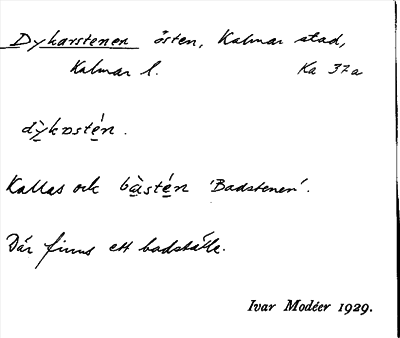 Dykarstenen östen, Kalmar stad,
Kalmar l. Ka 32a
dỳ̲kɒsté̲n.
Kallas ock bà̲sté̲n 'Badstenen'.
Där finns ett badställe.
Ivar Modéer 1929.